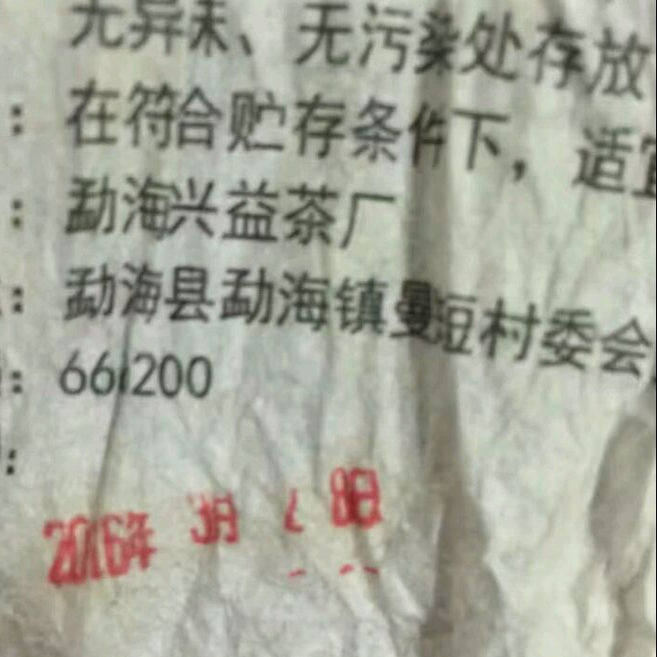 无异味、无污染处存放
：在符合贮存条件下，适宜
：勐海兴益茶厂
：勐海县勐海镇曼短村委会
：66 200
：
2016年 3月 8日